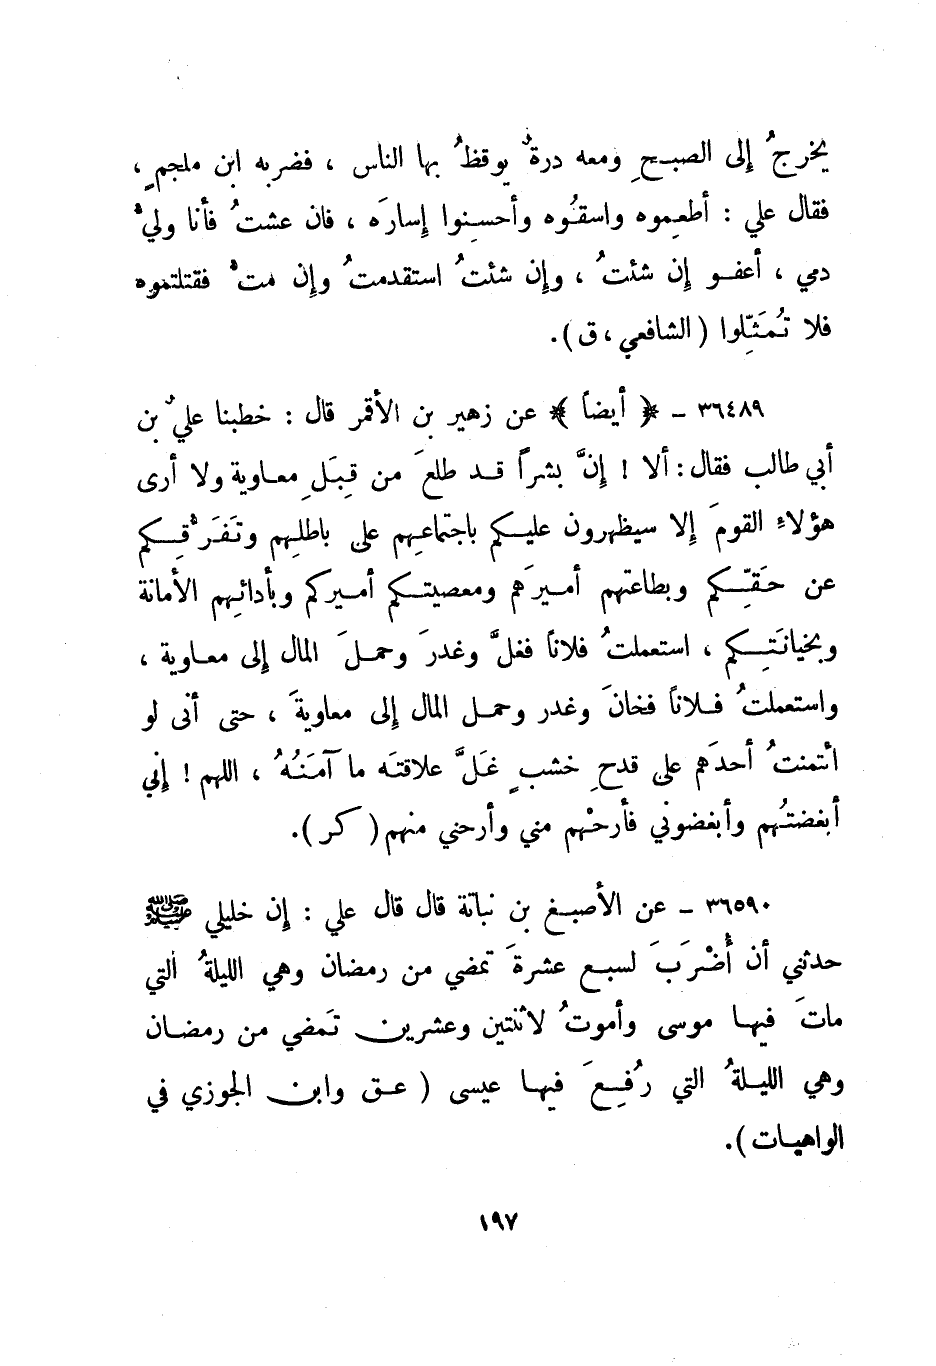 يخرجُ إلى الصبـحِ ومعه درةٌ يوقظُ بها الناس ، فضربه ابن ملجمٍ ،
فقال علي : أطعـموه واسقـُوه وأحسِـنوا إسارَه ، فان عشتُ فأنا وليُّ
دمي ، أعفـو إن شئتُ ، وإن شئتُ استقدمتُ وإن متُّ فقتلتموه
فلا تُـمَثِّلوا (الشافعي ، ق).
٣٦٤٨٩ ـ ﴿ أيضاً ﴾ عن زهير بن الأقمر قال : خطبنا عليُّ بن
أبي طالب فقال : ألا ! إنَّ بشراً قـد طلعَ من قِبَلِ معـاوية ولا أرى
هؤلاءِ القومَ إلا سيظهرون عليـكم باجتماعـِهم على باطلِـهم وتَفَرُّقِـكم
عن حَقِّـكم وبطاعتهم أمـيرَهم ومعصيتـكم أمـيركم وبأدائـِهم الأمانة
وبخيانَتِـكم ، استعملتُ فلاناً فغلَّ وغدرَ وحمـلَ المال إلى معـاوية ،
واستعملتُ فـلاناً فخانَ وغدر وحمـل المال إلى معاويةَ ، حتى أنى لو
ائتمنتُ أحدَهم على قدحِ خشبٍ غَلَّ علاقتَه ما آمَنُهُ ، اللهم ! إني
أبغضتُـهم وأبغضوني فأرحْهم مني وأرحني منهم ( كر ).
٣٦٥٩٠ ـ عن الأصبـغ بن نباتة قال قال علي : إن خليلي ﷺ
حدثني أن أُضْرَبَ لسبـع عشرةَ تمضي من رمضان وهي الليلةُ التي
ماتَ فيهـا موسى وأموتُ لاثنتين وعشرين تَمضي من رمضـان
وهي الليـلةُ التي رُفِـعَ فيهـا عيسى ( عـق وابن الجوزي في
الواهيـات ).
١٩٧